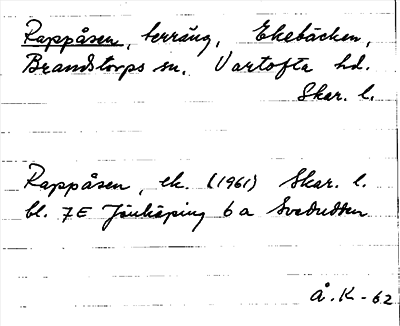 Rappåsen, terräng, Ekebäcken,
Brandstorps sn, Vartofta hd.
Skar. l.
Rappåsen, ek. (1961) Skar. l.
bl. 7E Jönköping 6 a
Å.K-62